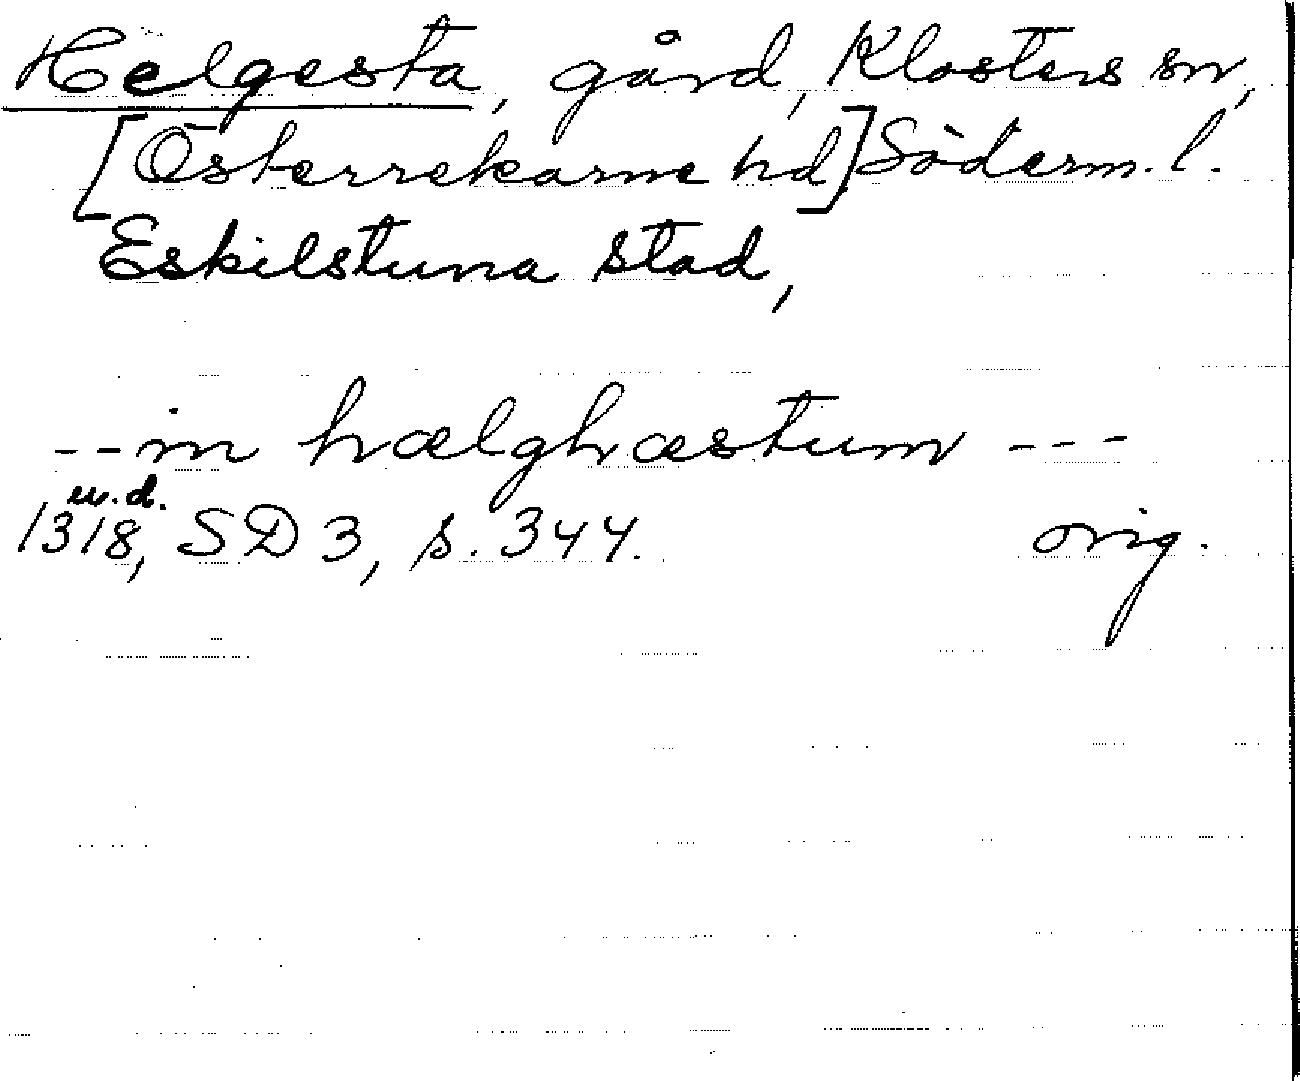 Helgesta, gård, Klosters sn,
[Österrekarne hd] Söderm. l.
Eskilstuna stad,
-- in hælghæstum ---
u.d.
1318, SD 3, s. 344. orig.